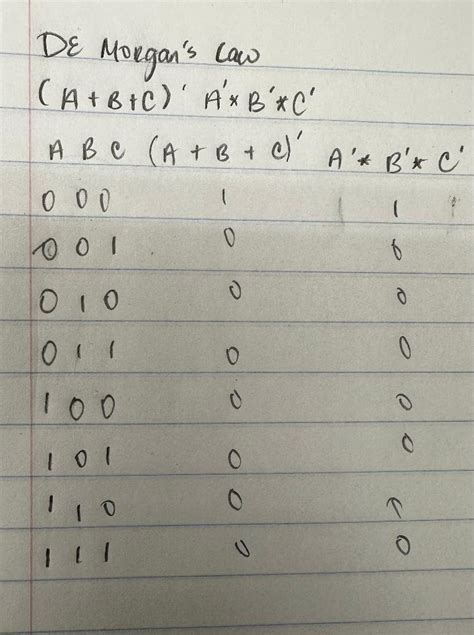 DE Morgan's Law
(A+B+C)' A'*B'*C'
A B C (A + B + C)' A'* B'* C'
0 0 0 1 1
0 0 1 0 0
0 1 0 0 0
0 1 1 0 0
1 0 0 0 0
1 0 1 0 0
1 1 0 0
1 1 1 0 0